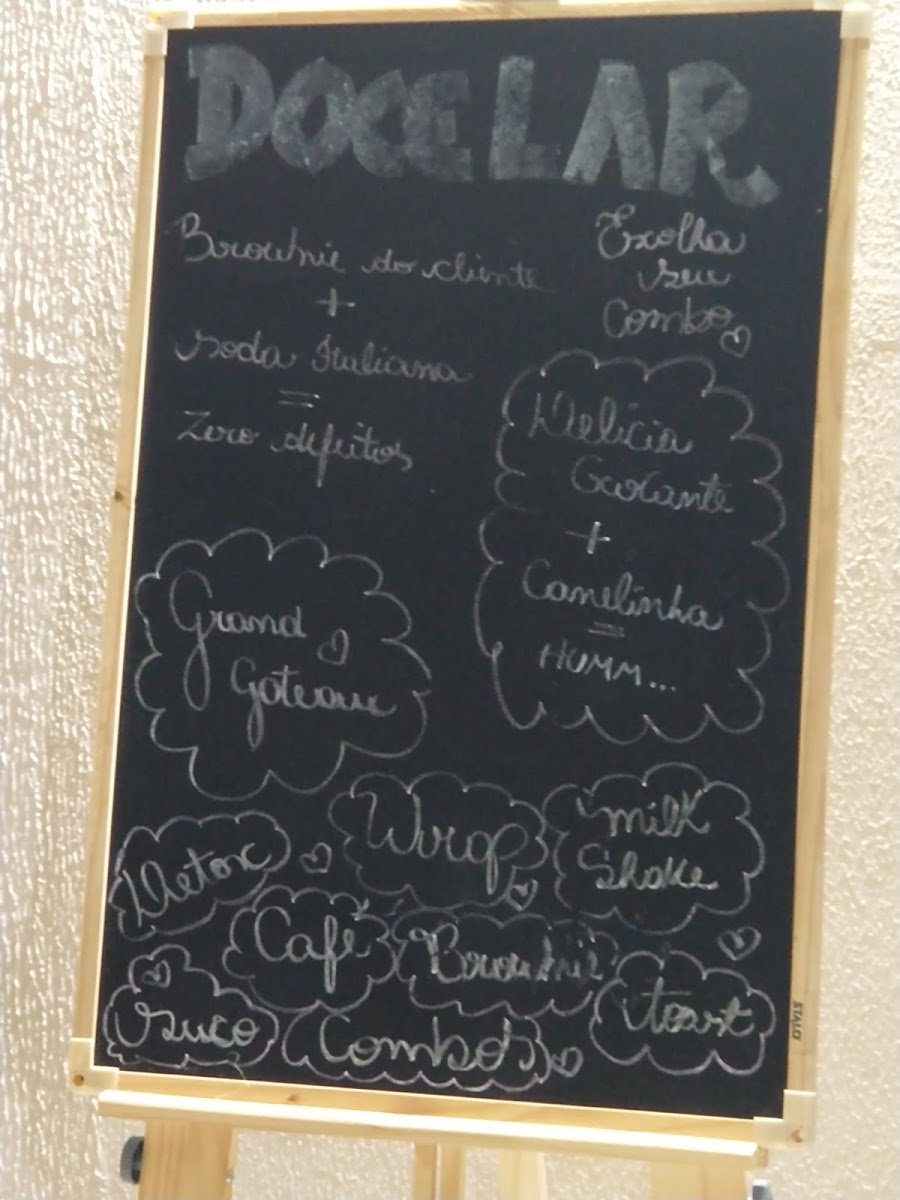 DOCE LAR
Brownie do cliente
+
soda Italiana
=
Zero defeitos
Escolha
seu
Combo
Delícia
Crocante
+
Canelinha
=
HUMM...
Grand
Gateau
Wrap
milk
Shake
Detox
Café
Brownie
Suco
Combos
Toast
STALO